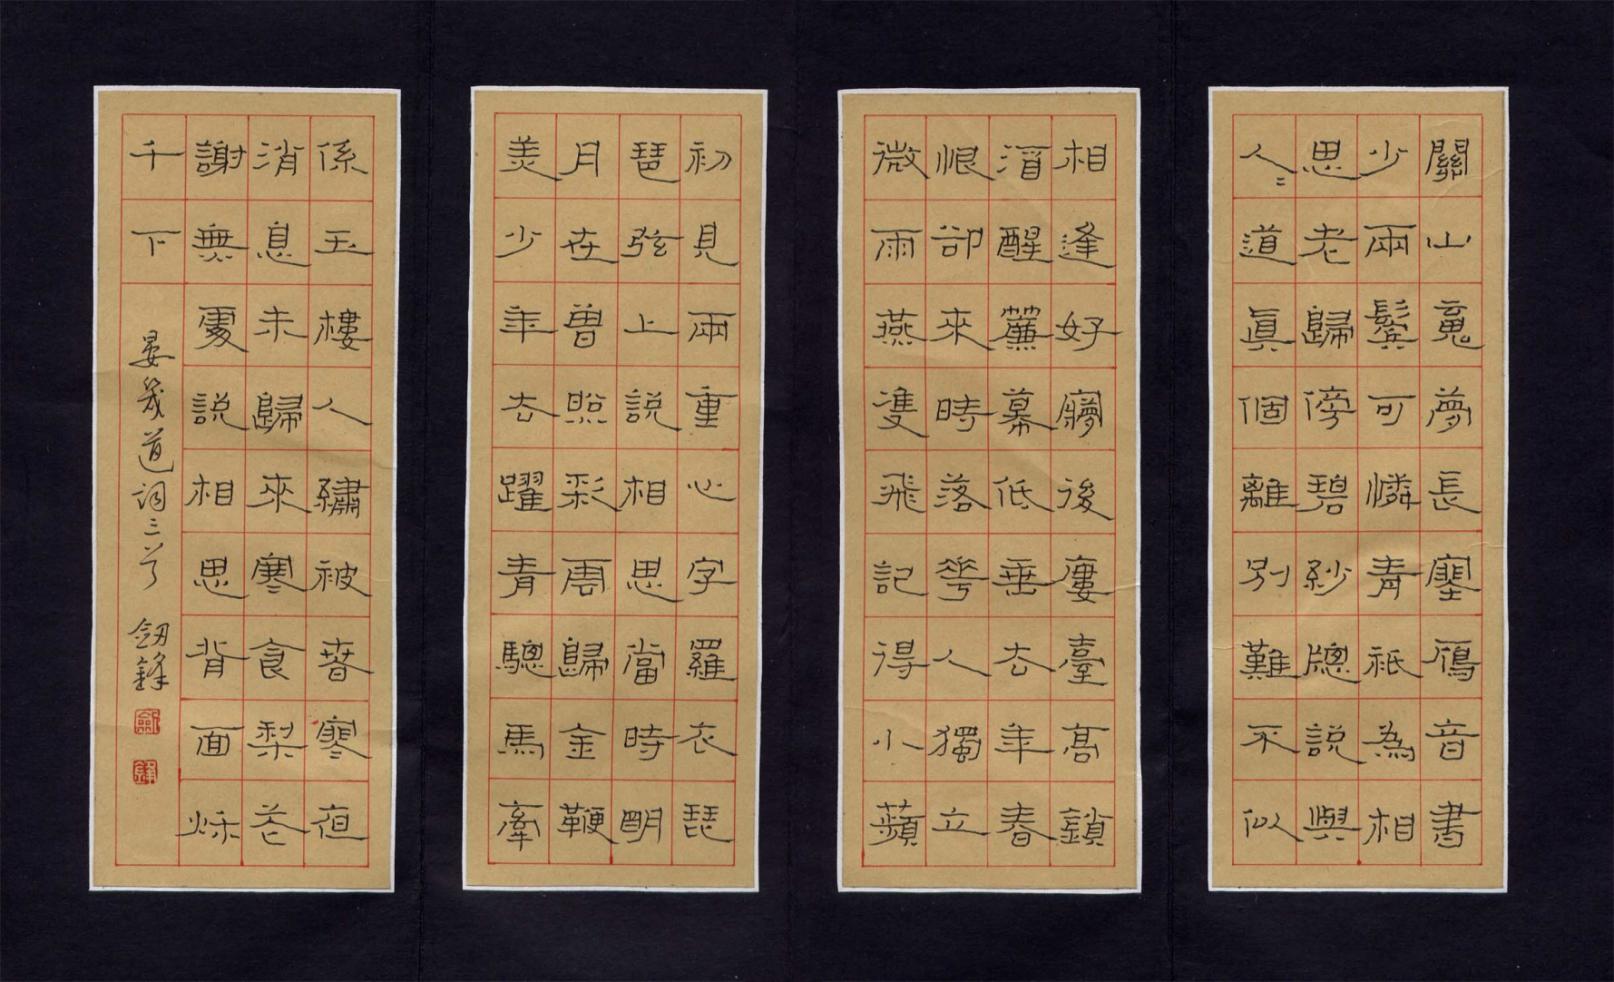 關山䰟夢長塞鴈音書
少兩鬢可憐青祇為相
思老歸傍碧紗牕說與
人〻道眞個離別難不似
相逢好㝱後廔臺高鎖
酒醒簾幕低垂去年春
恨卻來時落花人獨立
微雨燕雙飛記得小蘋
初見兩重心字羅衣琵
琶弦上說相思當時明
月在曾照彩雲歸金鞭
美少年去躍青驄馬牽
係玉樓人繡被春寒夜
消息未歸來寒食梨花
謝無處說相思背面秋
千下
晏幾道詞三首 劍鋒
劍
鋒